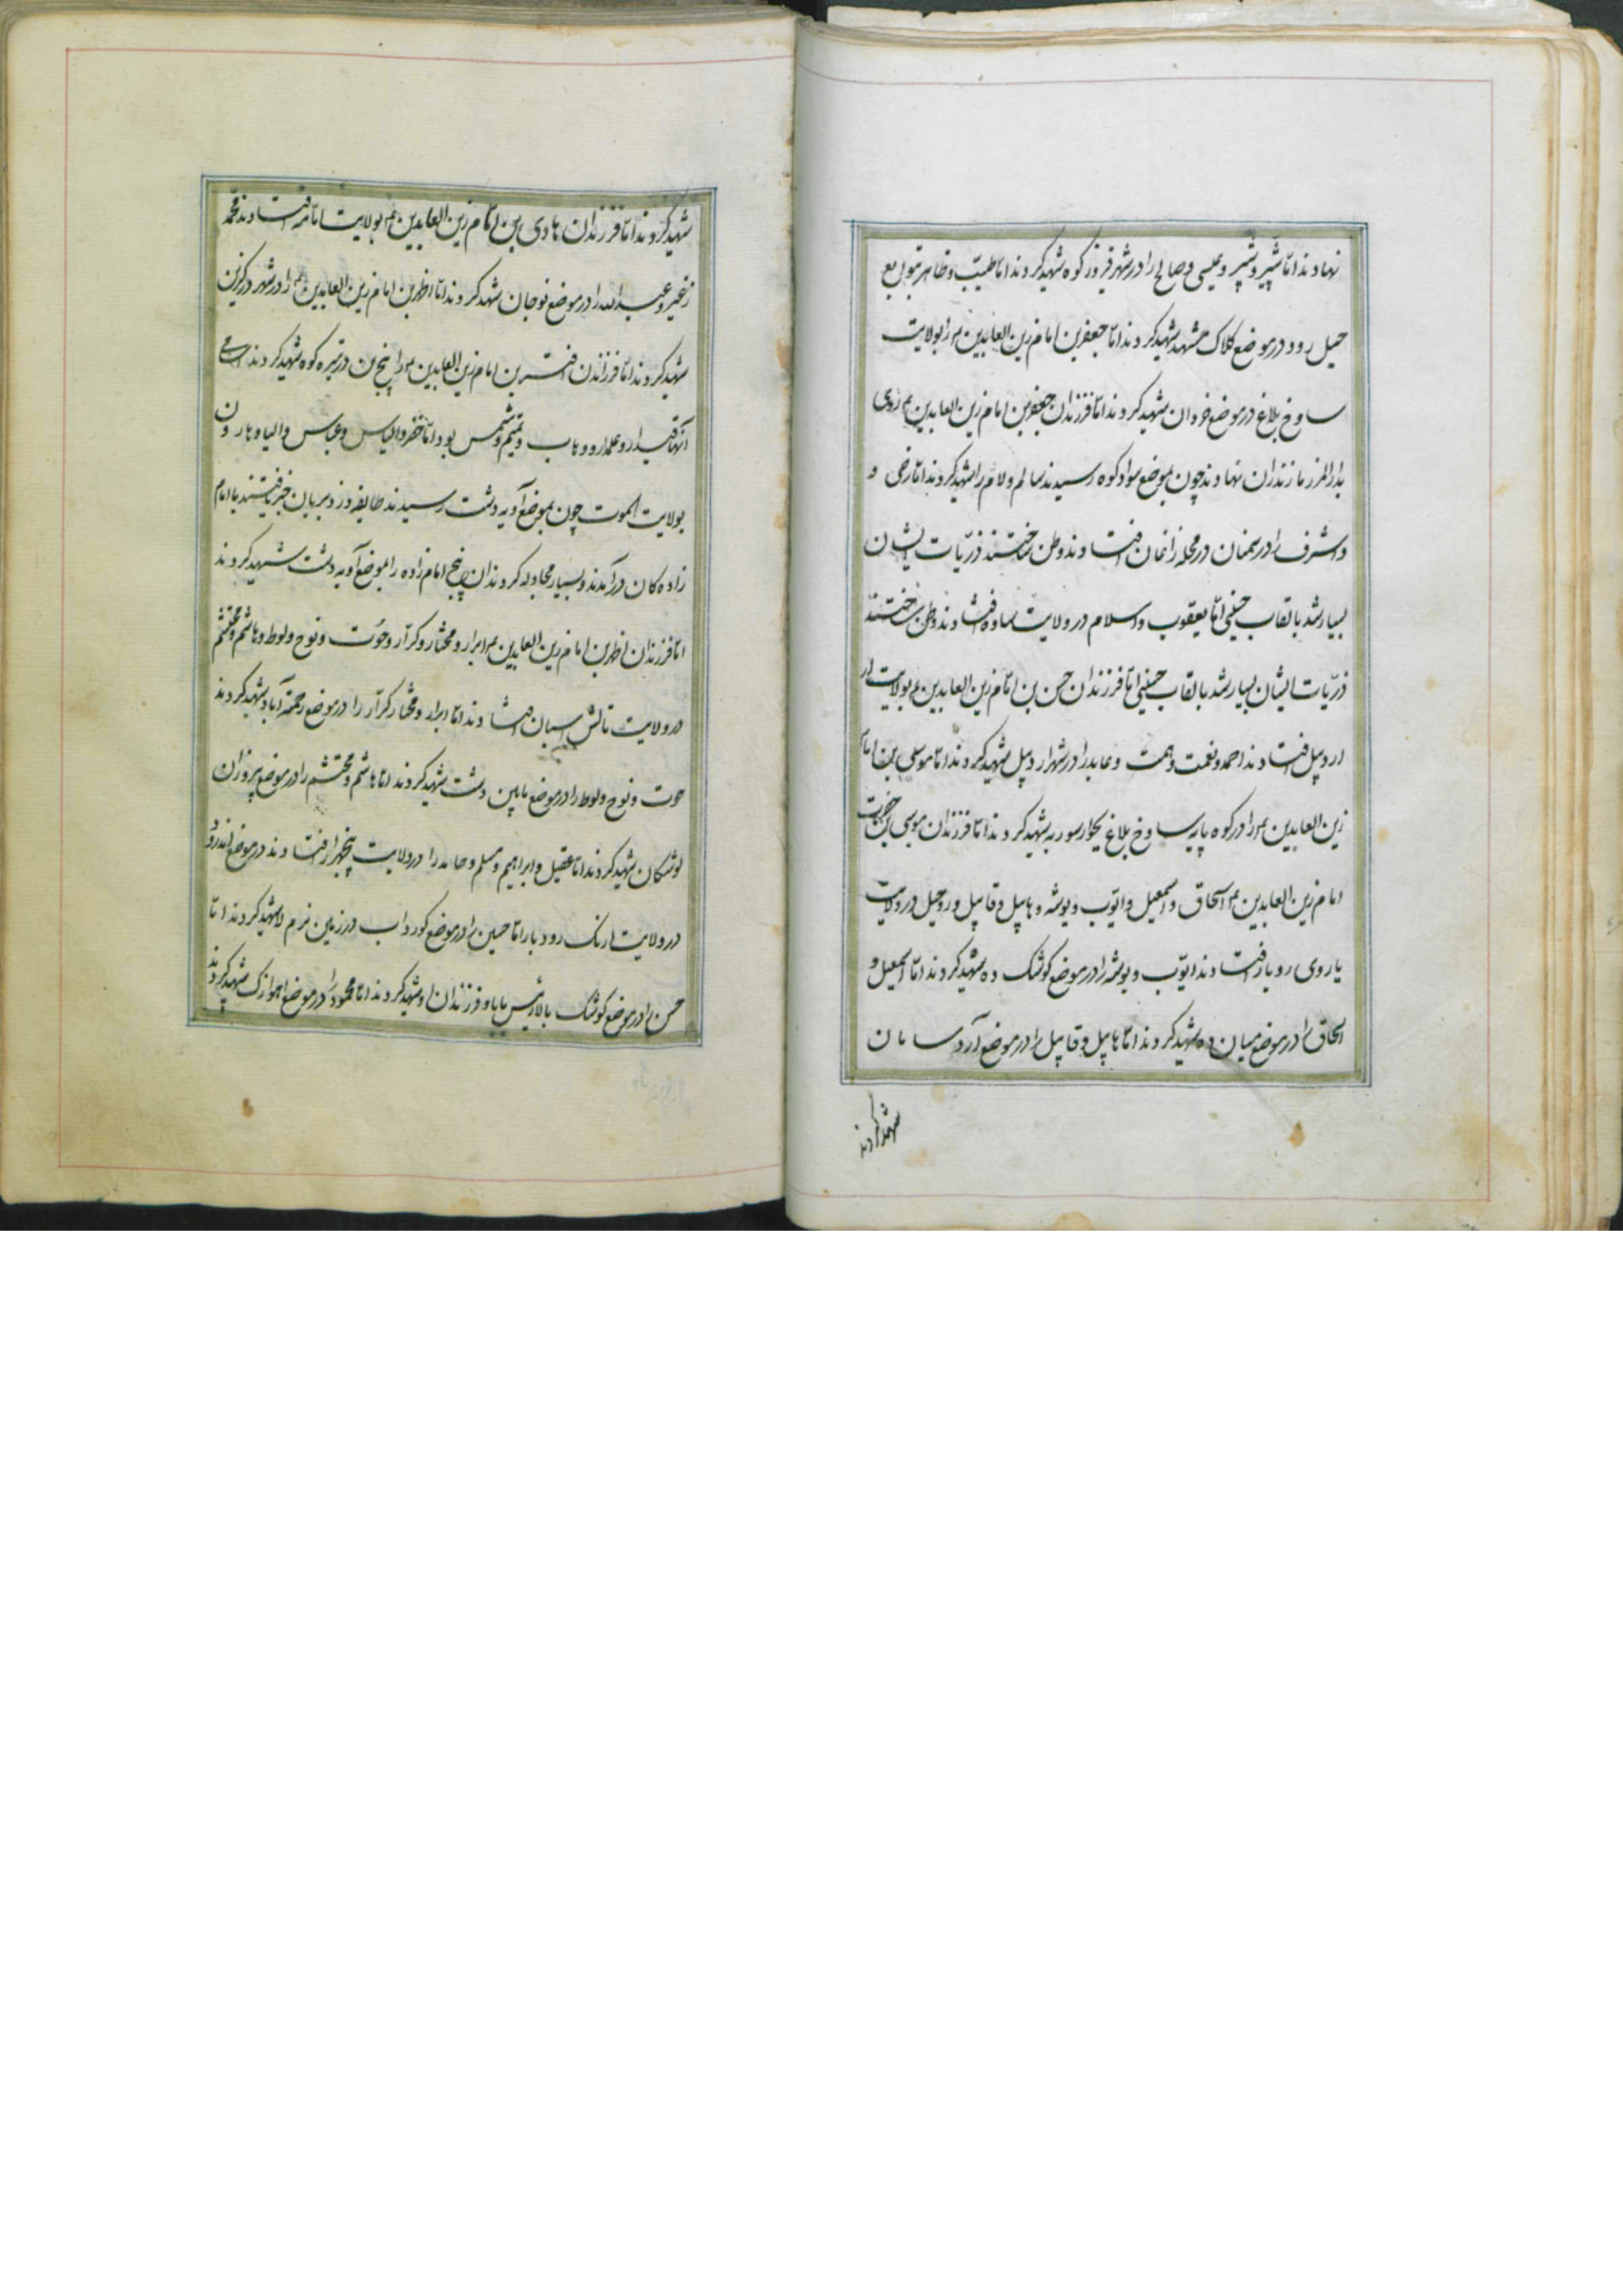 نهادند اما شپیر و شپر و عیسی و صالح را در شهر فیروز کوه شهید کردند اما طیب و طاهر بتوابع
حبل رود در موضع کلاک مشهد شهید کردند اما جعفر بن امام زین العابدین را بولایت
ساوخ بلاغ در موضع خروان شهید کردند اما فرزندان جعفر بن امام زین العابدین روی
بدارالمرز مازندران نهادند چون بموضع سوادکوه رسیدند سالم و لام را شهید کردند اما رضی و
و اشرف را در سمنان در محله زانخان افتادند و وطن ساختند ذریات ایشان
بسیار شد بالقاب حسینی اما یعقوب و اسلام در ولایت ساوه افتادند و وطن ساختند
ذریات ایشان بسیار شد بالقاب حسینی اما فرزندان حسن بن امام زین العابدین بولایت
اردبیل افتادند احمد و نعمت و همت و عابد را در شهر اردبیل شهید کردند اما موسی بن امام
زین العابدین را در کوه پایه ساوخ بلاغ شهید کردند اما فرزندان موسی بن حضرت
امام زین العابدین اسحاق و اسمعیل و ایوب و یوشه و هابیل و قابیل و روحیل در ولایت
یاروی روبار افتادند ایوب و یوشه را در موضع کوشک ده شهید کردند اما اسمعیل و
اسحاق را در موضع میان ده شهید کردند اما هابیل و قابیل را در موضع آردسامان
شهید کردند
شهید کردند اما فرزندان هادی بن امام زین العابدین بولایت افتادند محمد
زغیر و عبدالله را در موضع نوجان شهید کردند اما اظهر بن امام زین العابدین را در شهر درگزین
شهید کردند اما فرزندان افسر بن امام زین العابدین را پنج تن در تبره کوه شهید کردند اسامی
آنها قیدار و علمدار و وهاب و تمیم و شمس بود اما خضر و الیاس و عباس و الیا و هارون
بولایت الموت چون بموضع آوه دشت رسیدند طایفه وزدبریان خبر یافتند با امام
زاده کان در آمدند و بسیار مجادله کردند آن پنج امام زاده را بموضع آوه دشت شهید کردند
اما فرزندان اظهر بن امام زین العابدین ابرار و مختار و کرار و حوت و نوح و لوط و هاشم و محتشم
در ولایت تالش اسبان افتادند اما ابرار و مختار و کرار را در موضع رحمة آباد شهید کردند
حوت و نوح و لوط را در موضع پایین دشت شهید کردند اما هاشم و محتشم را در موضع پیروزان
لوشکان شهید کردند اما عقیل و ابراهیم و مسلم و حامد را در ولایت افتادند در موضع
در ولایت ارنک رودبار اما حسین را در موضع کورداب در زمین نرم لا شهید کردند اما
حسن را در موضع کوشک بالا رئیس بابا و فرزندان او شهید کردند اما محمود را در موضع اهوازک شهید کردند